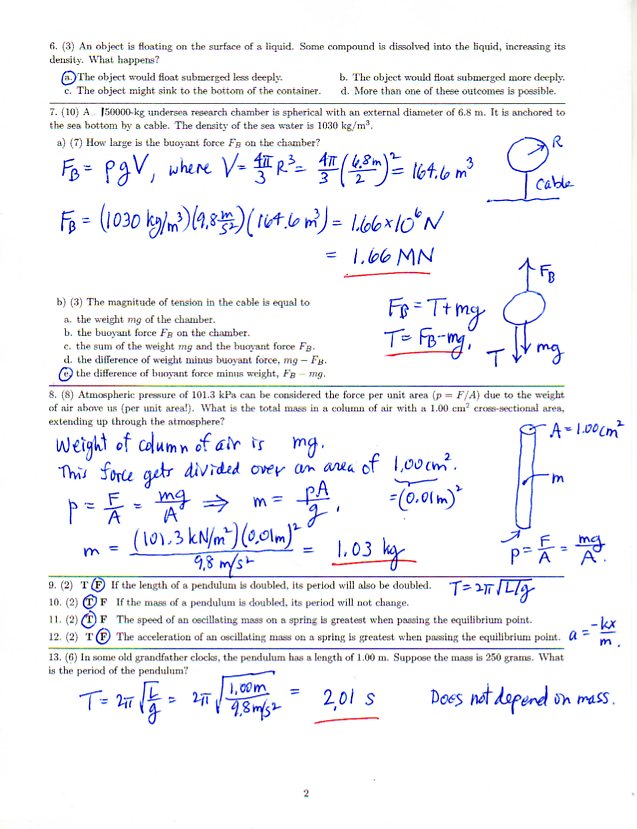 6. (3) An object is floating on the surface of a liquid. Some compound is dissolved into the liquid, increasing its
density. What happens?
a. The object would float submerged less deeply. b. The object would float submerged more deeply.
c. The object might sink to the bottom of the container. d. More than one of these outcomes is possible.
7. (10) A 150000-kg undersea research chamber is spherical with an external diameter of 6.8 m. It is anchored to
the sea bottom by a cable. The density of the sea water is 1030 kg/m³.
a) (7) How large is the buoyant force F_B on the chamber?
F_B = ρgV, where V = 4π/3 R³ = 4π/3 (6.8m/2)² = 164.6 m³
R
cable
F_B = (1030 kg/m³)(9.8 m/s²)(164.6 m³) = 1.66×10⁶ N
= 1.66 MN
F_B
b) (3) The magnitude of tension in the cable is equal to
a. the weight mg of the chamber.
b. the buoyant force F_B on the chamber.
c. the sum of the weight mg and the buoyant force F_B.
d. the difference of weight minus buoyant force, mg − F_B.
e. the difference of buoyant force minus weight, F_B − mg.
F_B = T + mg
T = F_B − mg.
T mg
8. (8) Atmospheric pressure of 101.3 kPa can be considered the force per unit area (p = F/A) due to the weight
of air above us (per unit area!). What is the total mass in a column of air with a 1.00 cm² cross-sectional area,
extending up through the atmosphere?
Weight of column of air is mg.
This force gets divided over an area of 1.00cm².
= (0.01m)²
p = F/A = mg/A ⇒ m = pA/g.
m = (101.3 kN/m²)(0.01m)² / 9.8 m/s² = 1.03 kg
A = 1.00 cm²
m
p = F/A = mg/A.
9. (2) T F If the length of a pendulum is doubled, its period will also be doubled. T = 2π√L/g
10. (2) T F If the mass of a pendulum is doubled, its period will not change.
11. (2) T F The speed of an oscillating mass on a spring is greatest when passing the equilibrium point.
12. (2) T F The acceleration of an oscillating mass on a spring is greatest when passing the equilibrium point. a = −kx/m.
13. (6) In some old grandfather clocks, the pendulum has a length of 1.00 m. Suppose the mass is 250 grams. What
is the period of the pendulum?
T = 2π √L/g = 2π √1.00m/9.8m/s² = 2.01 s Does not depend on mass.
2